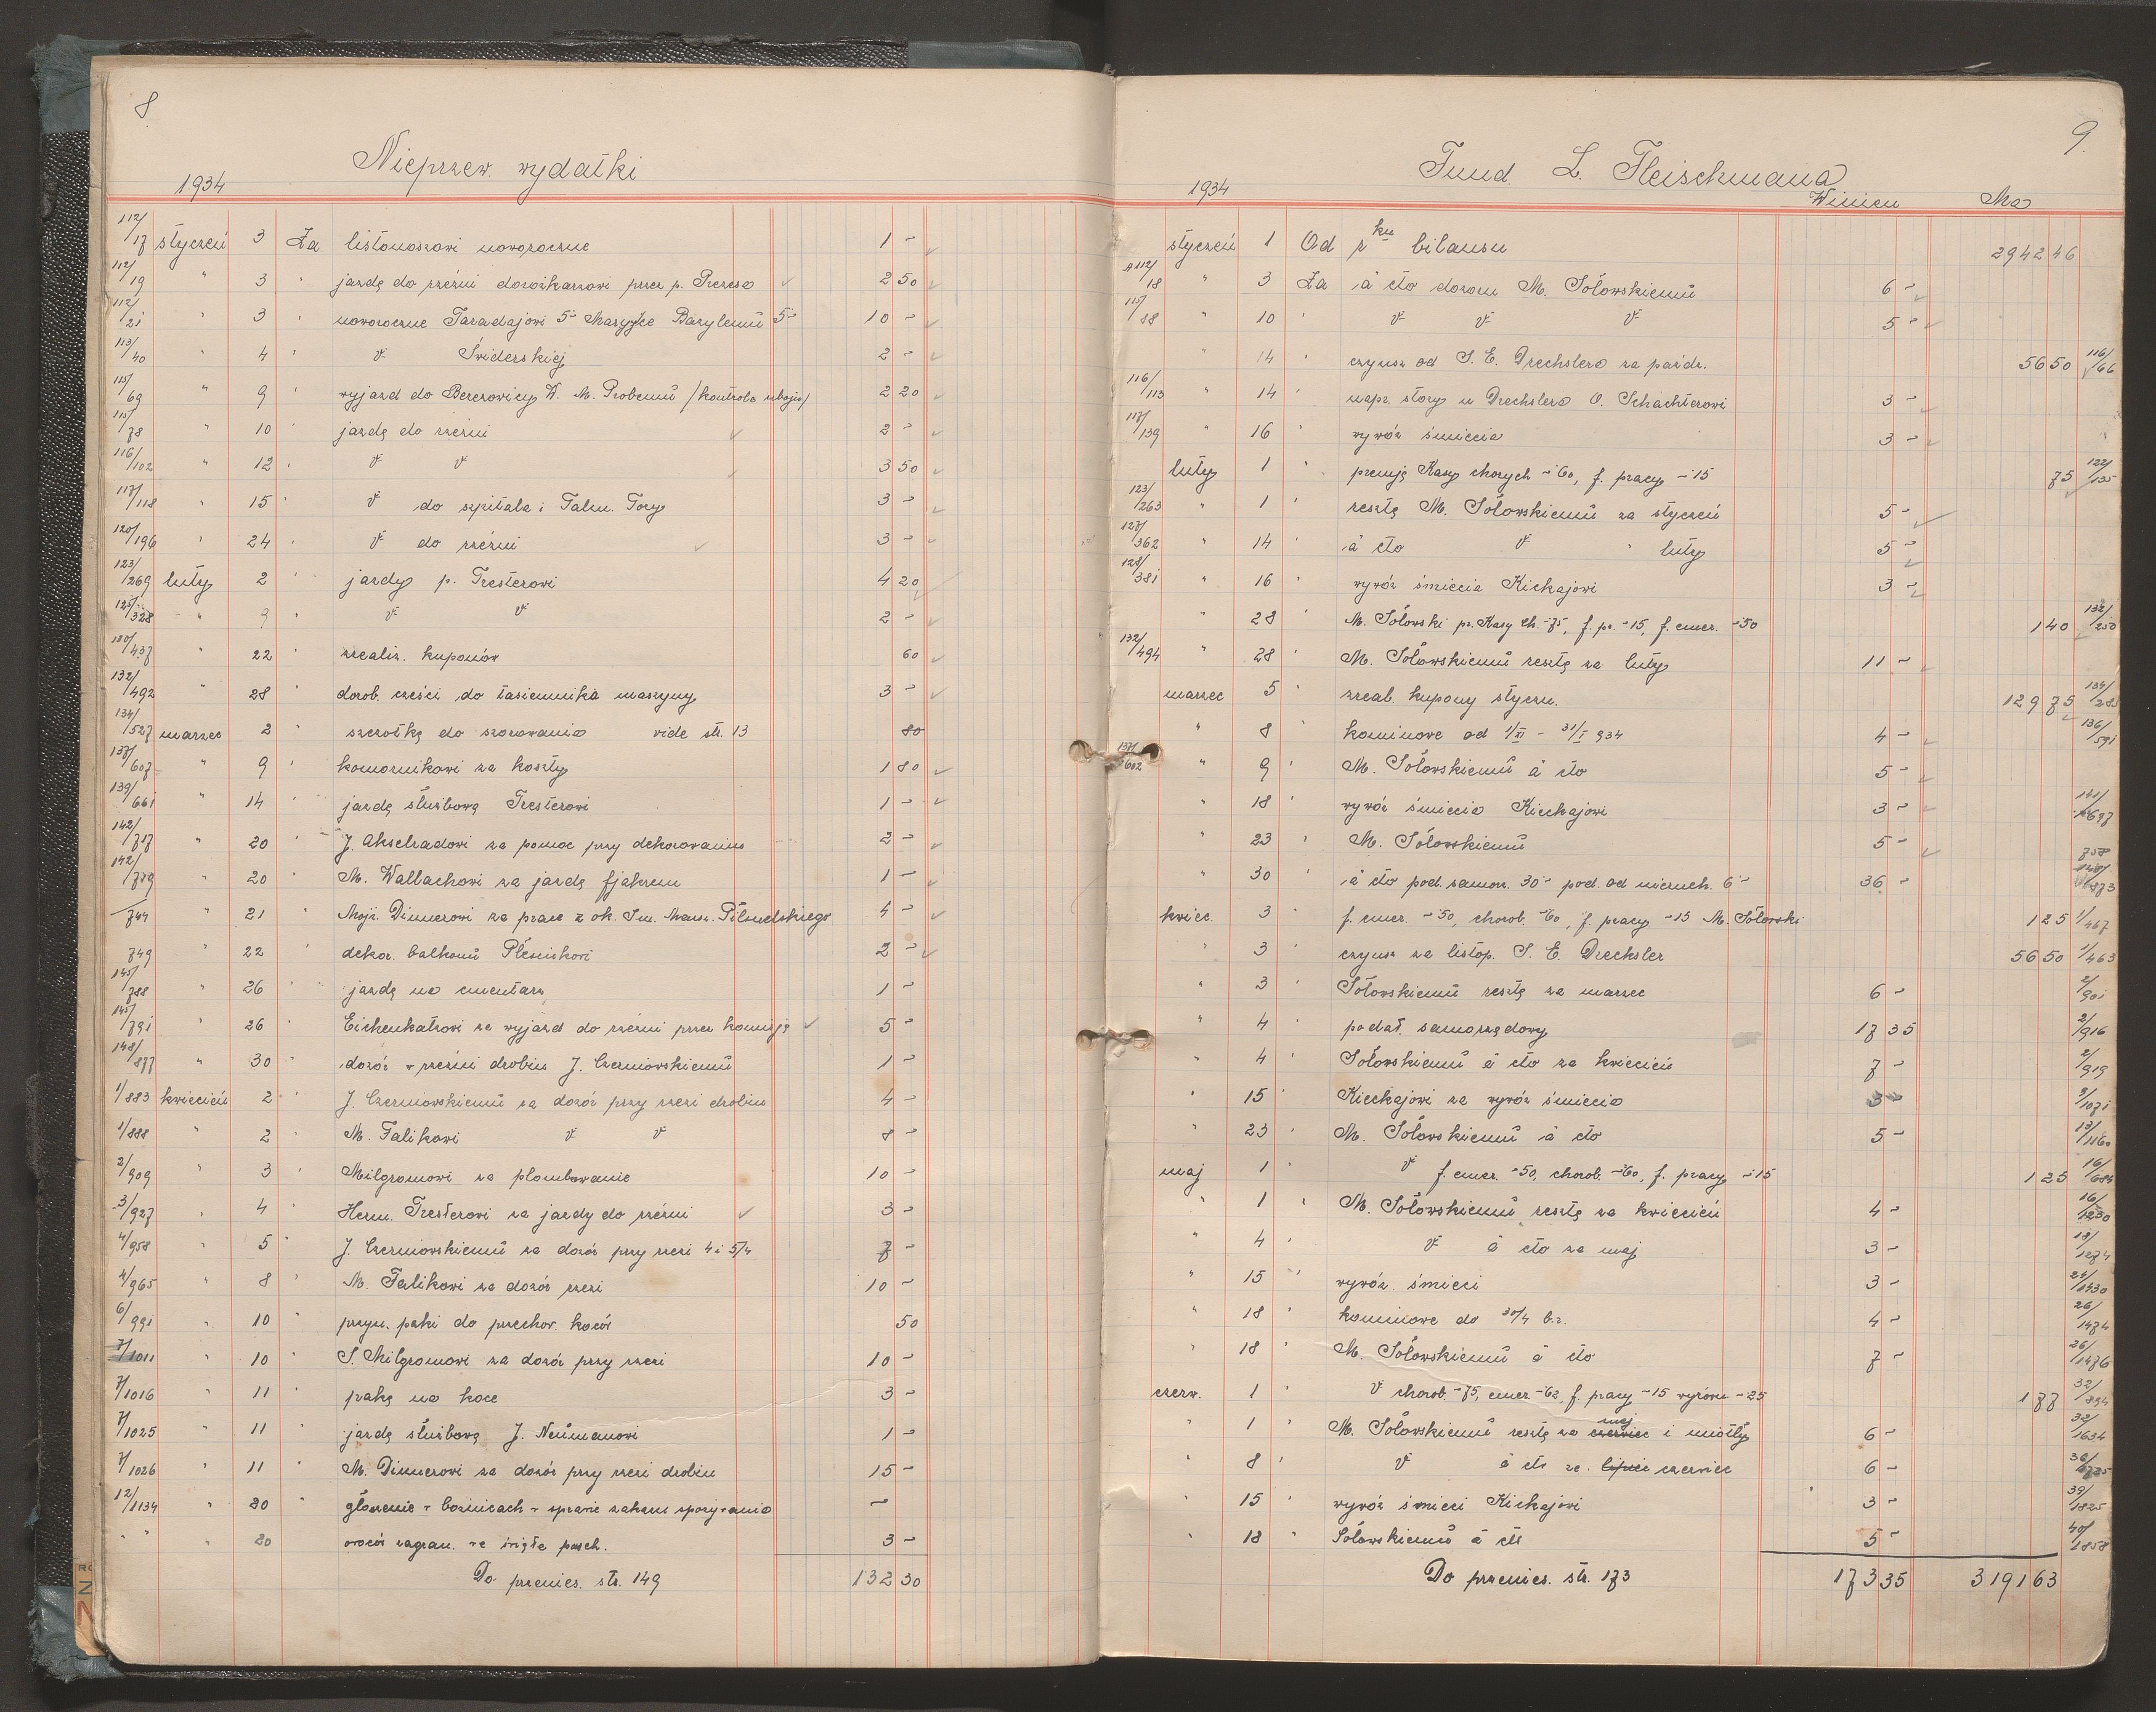 8
Nieprzew. wydatki
1934
112/17 styczeń 3 Za listonoszowi noworoczne 1 -
112/19 " 3 " jazdę do rzeźni dorożkarzowi przez p. Prezesa 2 50
112/21 " 3 " noworoczne Taradajowi 5- Maryjce Barylemu 5- 10 -
113/40 " 4 " Świderskiej 2 -
115/69 " 9 wyjazd do Berezowicy W. M. Probemu /kontrola uboju/ 2 20
115/78 " 10 " jazdę do rzeźni 2 -
116/102 " 12 " 3 50
117/118 " 15 " do szpitala i Talm. Tory 3 -
120/196 " 24 " do rzeźni 3 -
123/269 luty 2 " jazdy p. Tresterowi 4 20
125/328 " 9 " 2 -
130/437 " 22 " zrealiz. kuponów 60
132/492 " 28 " dorob. części do tasiemnika maszyny 3 -
134/527 marzec 2 " szczotkę do szorowania vide str. 13 80
137/607 " 9 " komornikowi za koszty 1 80
139/661 " 14 " jazdę służbową Tresterowi 1 -
142/717 " 20 " J. Akselradowi za pomoc przy dekorowaniu 2 -
142/719 " 20 " M. Wallachowi za jazdę fjakrem 1 -
744 " 21 " Mojż. Dimmerowi za prace z ok. Im. Marsz. Piłsudskiego 4 -
749 " 22 " dekor. balkonu Płeniskori 2 -
145/788 " 26 " jazdę na cmentarz 1 -
145/791 " 26 " Eichenkatzowi za wyjazd do rzeźni przez komisję 5 -
148/877 " 30 " dozór w rzeźni drobiu J. Czerniowskiemu 1 -
1/883 kwiecień 2 " J. Czerniowskiemu za dozór przy rzezi drobiu 4 -
1/888 " 2 " M. Falikowi 8 -
2/909 " 3 Milgromowi za plombowanie 10 -
3/927 " 4 " Herm. Tresterowi za jazdy do rzeźni 3 -
4/958 " 5 " J. Czerniowskiemu za dozór przy rzezi 4 i 5/4 7 -
4/965 " 8 " M. Falikowi za dozór rzezi 10 -
6/991 " 10 " przyn. paki do przechow. koców 50
7/1011 " 10 " S. Milgromowi za dozór przy rzezi 10 -
7/1016 " 11 " pakę na koce 3 -
7/1025 " 11 " jazdę służbową J. Neumanowi 1 -
7/1026 " 11 " M. Dimmerowi za dozór przy rzezi drobiu 15 -
12/1134 " 20 " głoszenie w bożnicach w sprawie zakazu spożywania -
" " " 20 owoców zagran. we święta pasch. 3 -
Do przenies. str. 149 132 30
9.
Fund. L. Fleischmana
1934 Winien Ma
styczeń 1 Od r ku bilansu 2942 46
112/18 " 3 Za á cto dozoru M. Sołowskiemu 6 -
115/88 " 10 " 5 -
" 14 " czynsz od S. E. Drechslera za paźdz. 56 50 116/66
116/113 " 14 " napr. story u Drechslera O. Schächterowi 3 -
117/139 " 16 " wywóz śmiecia 3 -
luty 1 " premję Kasy chorych -60, f. pracy -15 75 122/135
123/263 " 1 " resztę M. Sołowskiemu za styczeń 5 -
127/362 " 14 " á cto " luty 5 -
128/381 " 16 " wywóz śmiecia Kickajowi 3 -
" 28 " M. Sołowski pr. Kasy ch. -75, f. pr. -15, f. emer. -50 1 40 132/250
132/494 " 28 " M. Sołowskiemu resztę za luty 11 -
marzec 5 " zreal. kupony styczn. 129 75 134/285
" 8 " kominowe od 1/XI - 31/I 934 4 - 136/591
137/602 " 9 " M. Sołowskiemu á cto 5 -
" 18 " wywóz śmiecia Kieckajowi 3 - 141/697
" 23 " M. Sołowskiemu 5 - 758
" 30 " á cto pod. samorz. 30- pod. od nieruch. 6- 36 - 148/873
kwiec. 3 " f. emer. -50, chorob. -60, f. pracy -15 M. Sołowski 1 25 1/467
" 3 " czynsz za listop. S. E. Drechsler 56 50 1/463
" 3 " Sołowskiemu resztę za marzec 6 - 2/901
" 4 " podat. samorządowy 17 35 2/916
" 4 " Sołowskiemu á cto za kwiecień 7 - 2/919
" 15 " Kieckajowi za wywóz śmiecia 3 - 9/1071
" 23 " M. Sołowskiemu á cto 5 - 13/1160
maj 1 " f. emer. -50, chorob. -60, f. pracy -15 1 25 16/684
" 1 " M. Sołowskiemu resztę za kwiecień 4 - 16/1230
" 4 " á cto za maj 3 - 18/1274
" 15 " wywóz śmieci 3 - 24/1430
" 18 " kominowe do 30/4 b.r. 4 - 26/1474
" 18 " M. Sołowskiemu á cto 7 - 26/1476
czerw. 1 " chorob. -75, emer. -62, f. pracy -15 wyrówn -25 1 77 32/894
" 1 " M. Sołowskiemu resztę za czerwiec maj i miotły 6 - 32/1634
" 8 " á cto za lipiec czerwiec 6 - 36/1725
" 15 " wywóz śmieci Kickajowi 3 - 39/1825
" 18 " Sołowskiemu á cto 5 - 40/1858
Do przenies. str. 173 173 35 3191 63